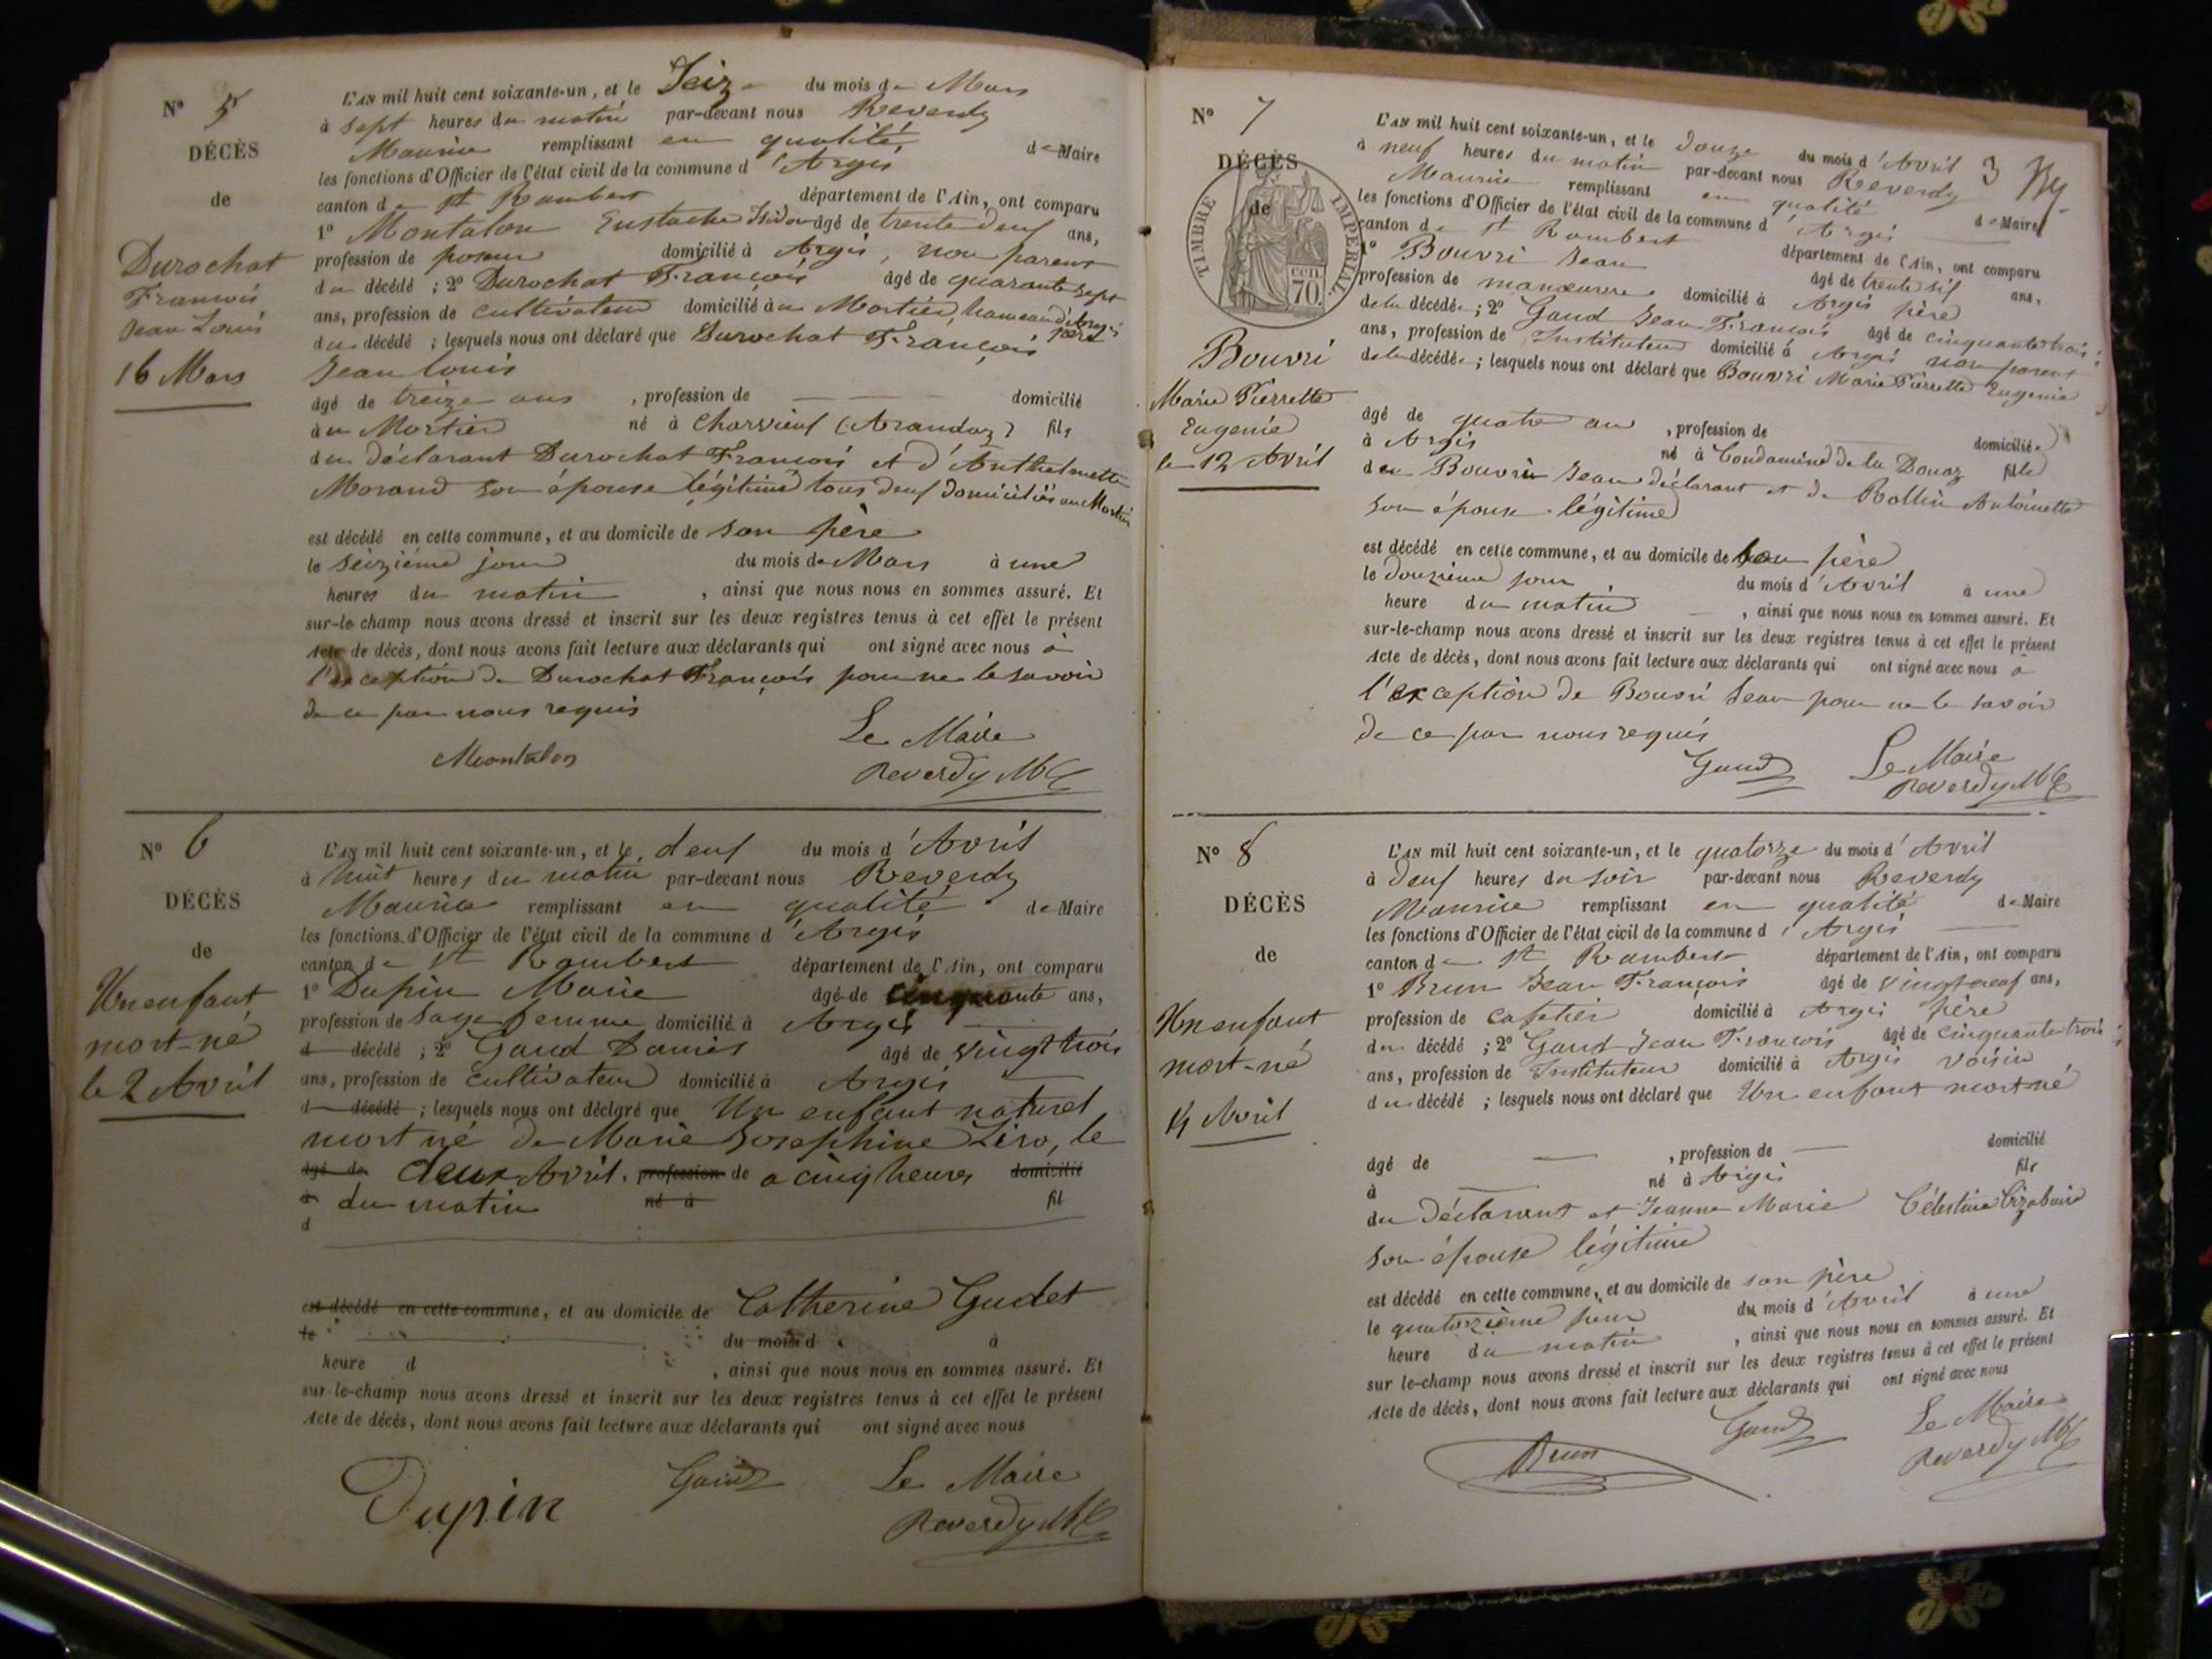 N° 5
DÉCÈS
de
Durochat
François
Jean Louis
16 Mars
L'AN mil huit cent soixante-un, et le Seize du mois de Mars
à sept heures du matin par-devant nous Reverdy
Maurice remplissant en qualité de Maire
les fonctions d'Officier de l'état civil de la commune d'Argis
canton de St Rambert département de l'Ain, ont comparu
1° Montalon Eustache Isidore âgé de trente deux ans,
profession de poseur domicilié à Argis, non parent
du décédé ; 2° Durochat François âgé de quarante sept
ans, profession de cultivateur domicilié au Mortier, hameau d'Argis père
du décédé ; lesquels nous ont déclaré que Durochat François
Jean Louis
âgé de treize ans , profession de domicilié
au Mortier né à Charvieux (Arandaz) fils
du déclarant Durochat François et d'Anthelmette
Morand son épouse légitime tous deux domiciliés au Mortier
est décédé en cette commune, et au domicile de son père
le seizième jour du mois de Mars à une
heures du matin , ainsi que nous nous en sommes assuré. Et
sur-le-champ nous avons dressé et inscrit sur les deux registres tenus à cet effet le présent
Acte de décès, dont nous avons fait lecture aux déclarants qui ont signé avec nous à
l'exception de Durochat François pour ne le savoir
de ce par nous requis
Montalon
Le Maire
Reverdy
N° 6
DÉCÈS
de
Un enfant
mort-né
le 2 Avril
L'AN mil huit cent soixante-un, et le deux du mois d'Avril
à huit heures du matin par-devant nous Reverdy
Maurice remplissant en qualité de Maire
les fonctions d'Officier de l'état civil de la commune d'Argis
canton de St Rambert département de l'Ain, ont comparu
1° Dupin Marie âgé de cinquante ans,
profession de sage femme domicilié à Argis
d décédé ; 2° Gaud Daniel âgé de vingt trois
ans, profession de cultivateur domicilié à Argis
d décédé ; lesquels nous ont déclaré que Un enfant naturel
mort né de Marie Josephine Livo, le
âgé de deux Avril, profession de a cinq heures domicilié
à du matin né à fil
d
est décédé en cette commune, et au domicile de Catherine Gudet
le du mois d à
heure d , ainsi que nous nous en sommes assuré. Et
sur-le-champ nous avons dressé et inscrit sur les deux registres tenus à cet effet le présent
Acte de décès, dont nous avons fait lecture aux déclarants qui ont signé avec nous
Dupin
Gaud
Le Maire
Reverdy
3
N° 7
DÉCÈS
de
TIMBRE IMPERIAL
cen
70.
Bouvri
Marie Pierrette
Eugenie
le 12 Avril
L'AN mil huit cent soixante-un, et le douze du mois d'Avril
à neuf heures du matin par-devant nous Reverdy
Maurice remplissant en qualité de Maire
les fonctions d'Officier de l'état civil de la commune d'Argis
canton de St Rambert département de l'Ain, ont comparu
1° Bouvri Jean âgé de trente six ans,
profession de manœuvre domicilié à Argis père
de la décédée ; 2° Gaud Jean François âgé de cinquante trois
ans, profession de Instituteur domicilié à Argis non parent
de la décédée ; lesquels nous ont déclaré que Bouvri Marie Pierrette Eugenie
âgé de quatre ans , profession de domiciliée
à Argis né à Condamine de la Douaz fille
de Bouvri Jean déclarant et de Rollin Antoinette
son épouse légitime
est décédé en cette commune, et au domicile de son père
le douzième jour du mois d'Avril à une
heure du matin , ainsi que nous nous en sommes assuré. Et
sur-le-champ nous avons dressé et inscrit sur les deux registres tenus à cet effet le présent
Acte de décès, dont nous avons fait lecture aux déclarants qui ont signé avec nous à
l'exception de Bouvri Jean pour ne le savoir
de ce par nous requis
Gaud
Le Maire
Reverdy
N° 8
DÉCÈS
de
Un enfant
mort-né
14 Avril
L'AN mil huit cent soixante-un, et le quatorze du mois d'Avril
à deux heures du soir par-devant nous Reverdy
Maurice remplissant en qualité de Maire
les fonctions d'Officier de l'état civil de la commune d'Argis
canton de St Rambert département de l'Ain, ont comparu
1° Brun Jean François âgé de vingt neuf ans,
profession de cafetier domicilié à Argis père
du décédé ; 2° Gaud Jean François âgé de cinquante trois
ans, profession de Instituteur domicilié à Argis voisin
du décédé ; lesquels nous ont déclaré que Un enfant mort-né
âgé de , profession de domicilié
à né à Argis fils
du déclarant et Jeanne Marie Célestine
son épouse légitime
est décédé en cette commune, et au domicile de son père
le quatorzième jour du mois d'Avril à une
heure du matin , ainsi que nous nous en sommes assuré. Et
sur le-champ nous avons dressé et inscrit sur les deux registres tenus à cet effet le présent
Acte de décès, dont nous avons fait lecture aux déclarants qui ont signé avec nous
Brun
Gaud
Le Maire
Reverdy